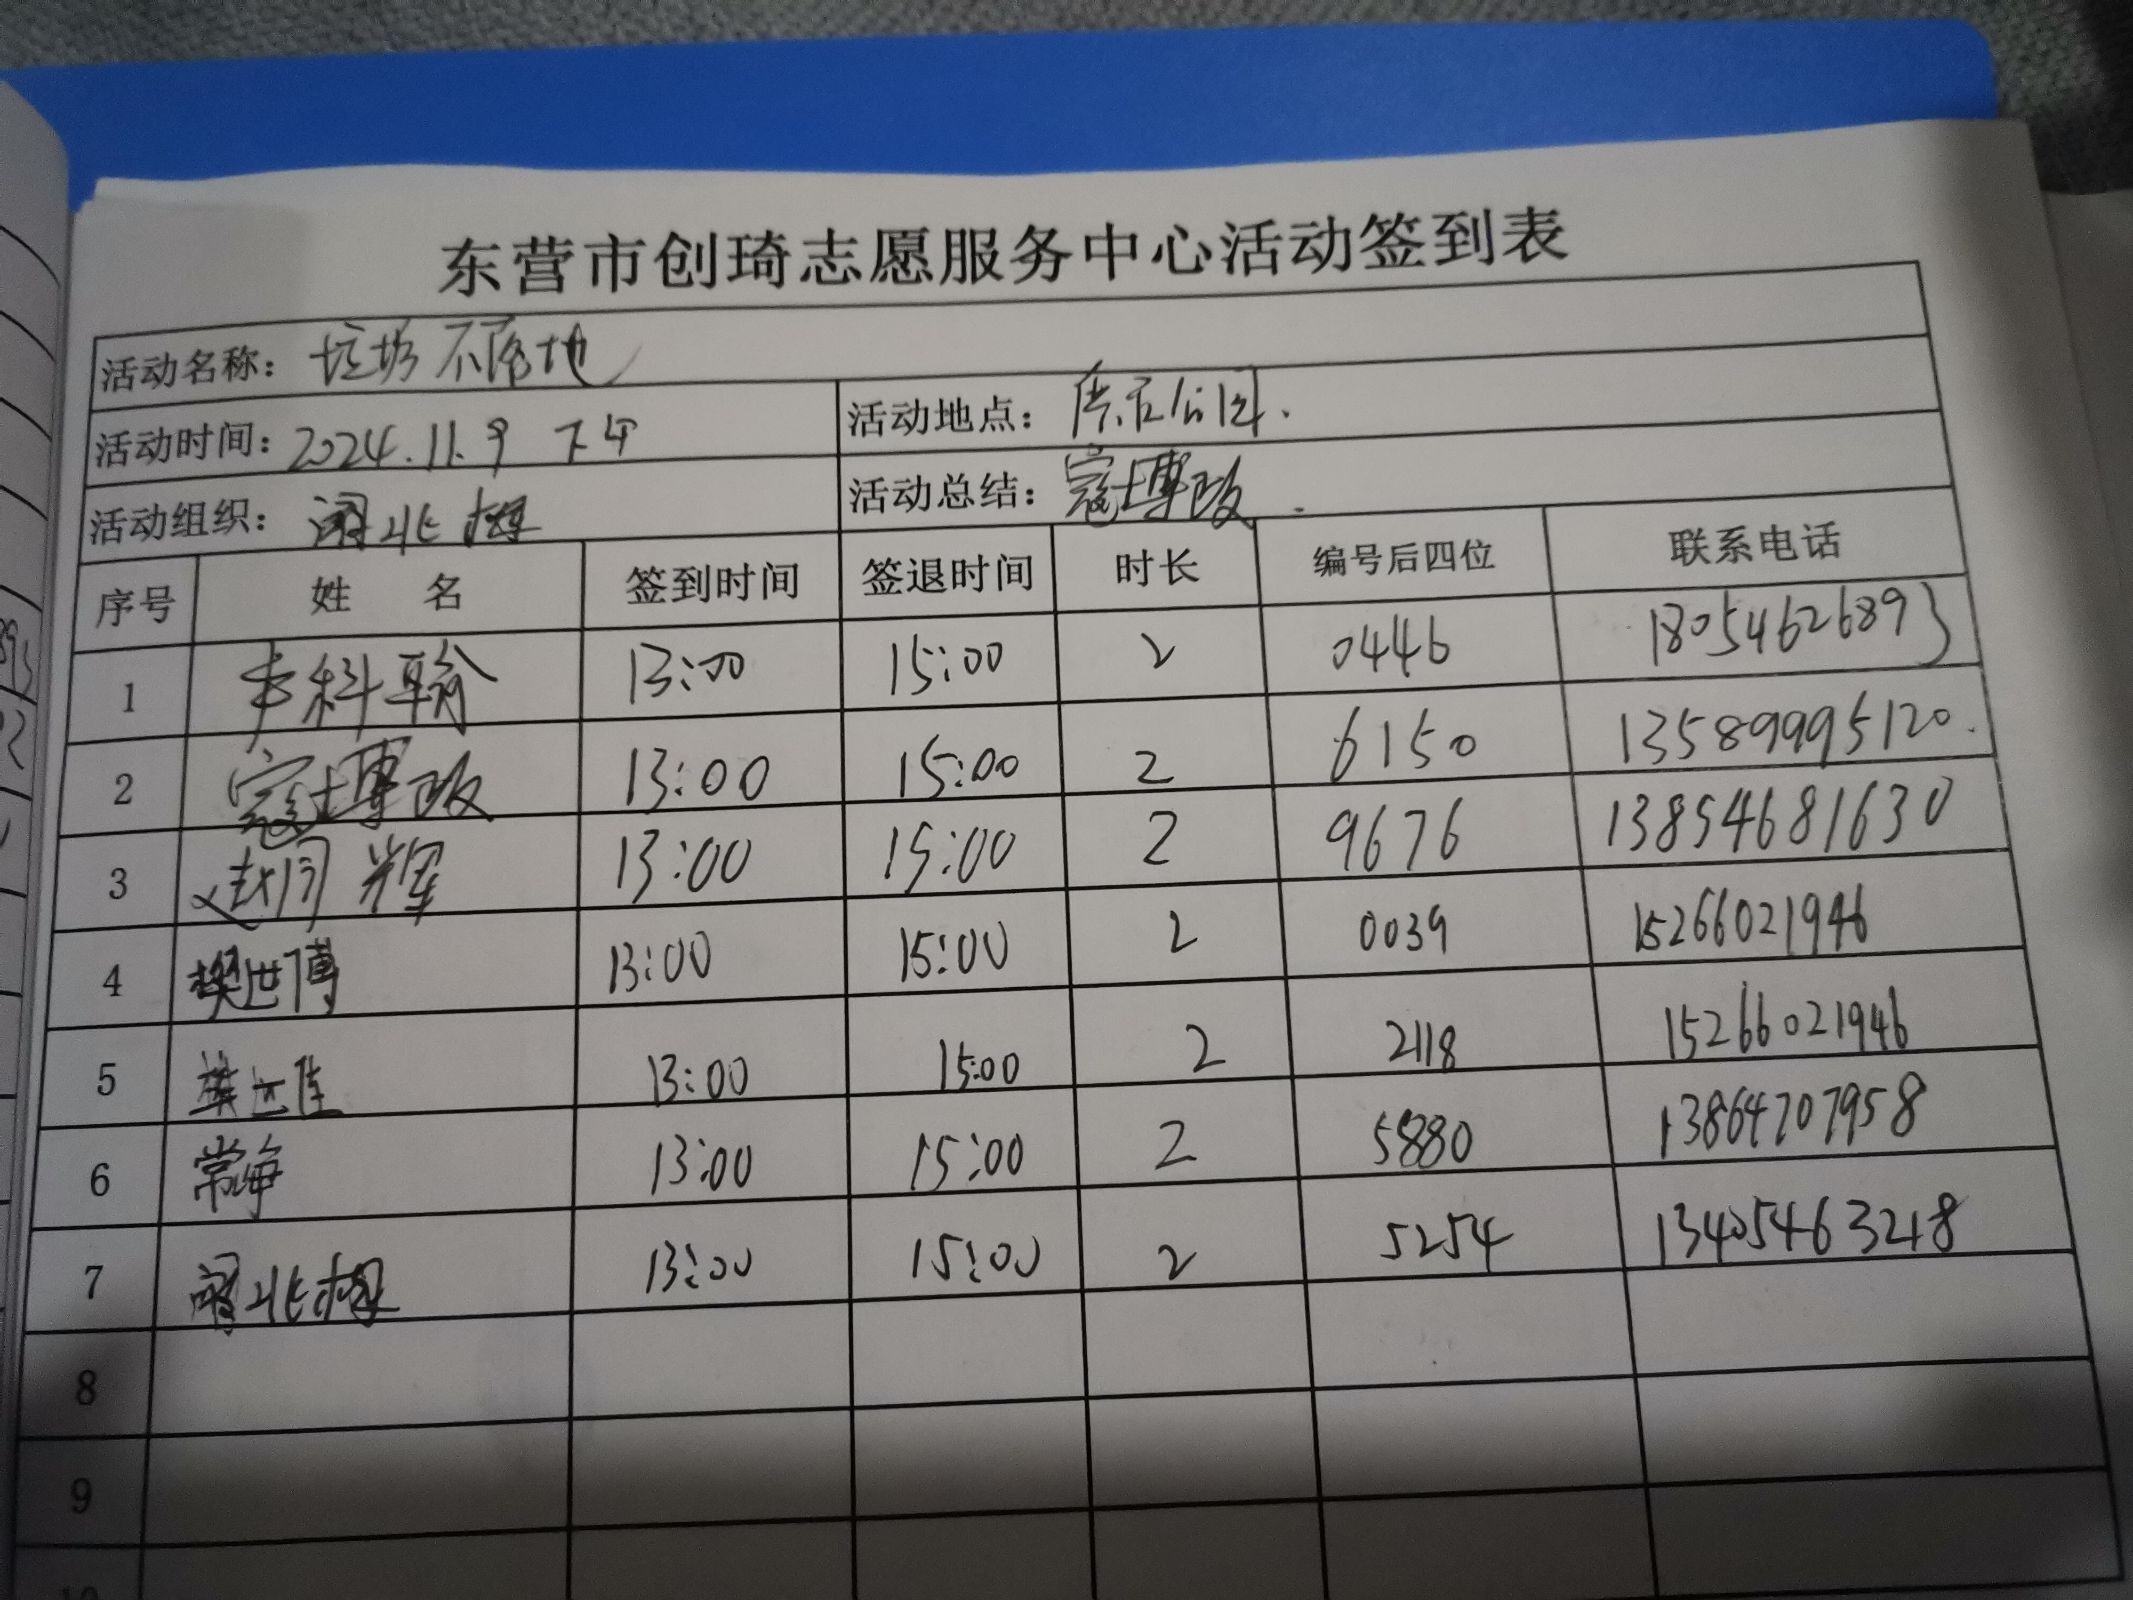 东营市创琦志愿服务中心活动签到表
活动名称： 垃圾不落地
活动时间： 2024.11.9 下午 活动地点：
活动组织： 活动总结： 寇博改
序号 姓名 签到时间 签退时间 时长 编号后四位 联系电话
1 科翰 13:00 15:00 2 0446 18054626893
2 寇博改 13:00 15:00 2 6150 13589995120
3 赵同辉 13:00 15:00 2 9676 13854681630
4 樊世博 13:00 15:00 2 0039 15266021946
5 13:00 15:00 2 2118 15266021946
6 常峥 13:00 15:00 2 5880 13864707958
7 13:00 15:00 2 5254 13405463218
8
9
10